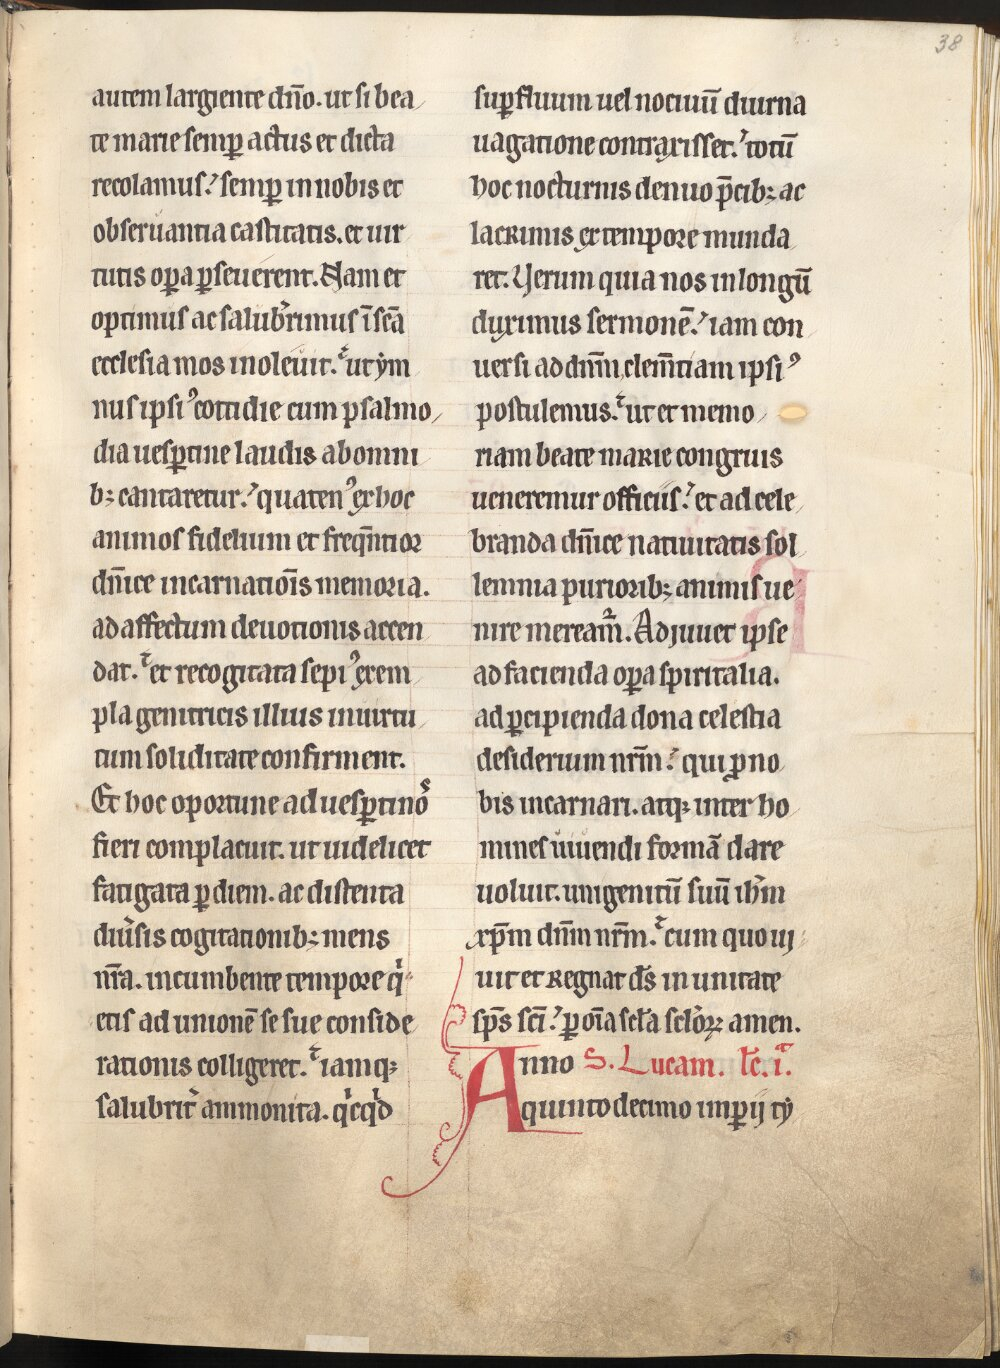 38
autem largiente dño. ut si bea
te marie semꝑ actus et dicta
recolamus? semꝑ in nobis et
obseruantia castitatis. et uir
tutis oꝑa ꝑseuerent. Nam et
optimus ac salub̃rimus ĩ sc̄a
ecclesia mos inoleuit. ut ẏm
nus ipsiꝰ cottidie cum psalmo
dia uesꝑtine laudis ab omni
bꝫ cantaretur. quatenꝰ ex hoc
animos fidelium et freq̄ntior
dn̄ice incarnatiōis memoria.
ad affectum deuotionis accen
dat. et recogitata sepiꝰ exem
pla genitricis illius in uirtu
tum soliditate confirment.
Et hoc oportune ad uesꝑtinoˢ
fieri complacuit. ut uidelicet
fatigata ꝑ diem. ac distenta
diũsis cogitationibꝫ mens
nr̄a. incumbente tempore qͥ
etis ad unionē se sue conside
rationis colligeret. iamqꝫ
salubrit᷑ ammonita. qͥcqͥd
suꝑfluum uel nociuū diurna
uagatione contraxisset. totū
hoc nocturnis denuo p̄cibꝫ ac
lacrimis ex tempore munda
ret. Uerum quia nos in longū
duximus sermonē. iam con
uersi ad dn̄m, clem̄tiam ipsiꝰ
postulemus. ut et memo
riam beate marie congruis
ueneremur officiis? et ad cele
branda dn̄ice natiuitatis sol
lemnia purioribꝫ animis ue
nire meream᷑. Adjuuet ipse
ad facienda oꝑa spiritalia.
ad ꝑcipienda dona celestia
desiderium nr̄m? qui ꝓ no
bis incarnari. atqꝫ inter ho
mines uiuendi formā dare
uoluit. unigenitū suū ih̄m
xp̄m dn̄m nr̄m. cum quo ui
uit et regnat ds̄ in unitate
sp̄s sc̄i? ꝑ oīa scl̄a scl̄oꝝ amen.
Anno S. Lucam. lc̄. i.ᵃ
quinto decimo imꝑij tẏ